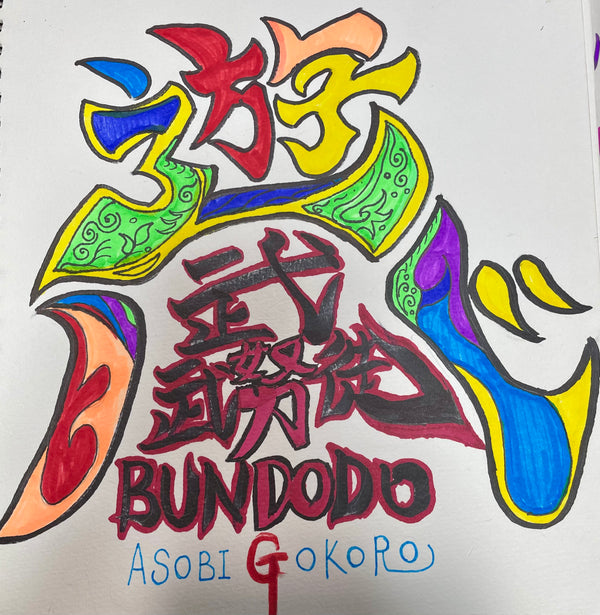 遊心
武
武努徒
BUNDODO
ASOBI GOKORO